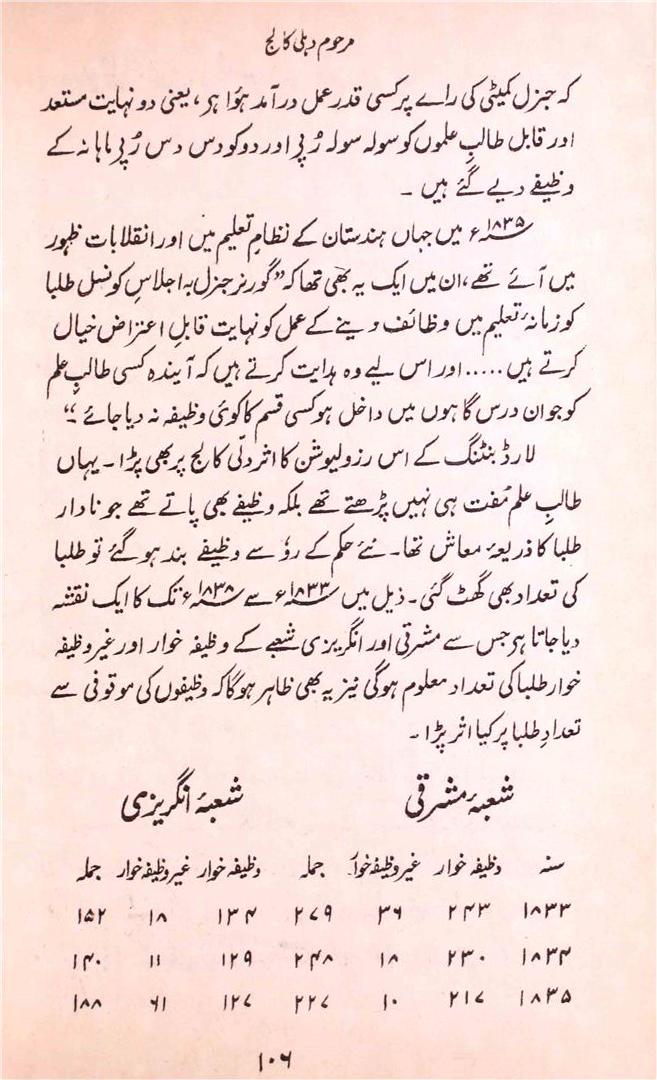 مرحوم دہلی کالج
کہ جنرل کمیٹی کی رائے پر کسی قدر عمل درآمد ہؤا ہر، یعنی دو نہایت مستعد
اور قابل طالبِ علموں کو سولہ سولہ رُپر اور دو کو دس دس رُپر ماہانہ کے
وظیفے دیے گئے ہیں ۔
۱۸۳۵ء میں جہاں ہندستان کے نظامِ تعلیم میں اور انقلابات ظہور
میں آئے تھے، ان میں ایک یہ بھی تھا کہ ”گورنر جنرل بہ اجلاسِ کونسل طلبا
کو زمانۂ تعلیم میں وظائف دینے کے عمل کو نہایت قابلِ اعتراض خیال
کرتے ہیں ..... اور اس لیے وہ ہدایت کرتے ہیں کہ آیندہ کسی طالبِ علم
کو جو ان درس گاہوں میں داخل ہو کسی قسم کا کوئی وظیفہ نہ دیا جائے ۔“
لارڈ بنٹنگ کے اس رزولیوشن کا اثر دلّی کالج پر بھی پڑا ۔ یہاں
طالبِ علم مُفت ہی نہیں پڑھتے تھے بلکہ وظیفے بھی پاتے تھے جو نادار
طلبا کا ذریعۂ معاش تھا ۔ نئے حکم کے رؤ سے وظیفے بند ہو گئے تو طلبا
کی تعداد بھی گھٹ گئی ۔ ذیل میں ۱۸۳۳ء سے ۱۸۳۸ء تک کا ایک نقشہ
دیا جاتا ہر جس سے مشرقی اور انگریزی شعبے کے وظیفہ خوار اور غیر وظیفہ
خوار طلبا کی تعداد معلوم ہوگی نیز یہ بھی ظاہر ہوگا کہ وظیفوں کی موقوفی سے
تعدادِ طلبا پر کیا اثر پڑا ۔
شعبۂ مشرقی شعبۂ انگریزی
سنہ وظیفہ خوار غیر وظیفہ خوار جملہ وظیفہ خوار غیر وظیفہ خوار جملہ
۱۸۳۳ ۲۴۳ ۳۶ ۲۷۹ ۱۳۴ ۱۸ ۱۵۲
۱۸۳۴ ۲۳۰ ۱۸ ۲۴۸ ۱۲۹ ۱۱ ۱۴۰
۱۸۳۵ ۲۱۷ ۱۰ ۲۲۷ ۱۲۷ ۶۱ ۱۸۸
۱۰۶